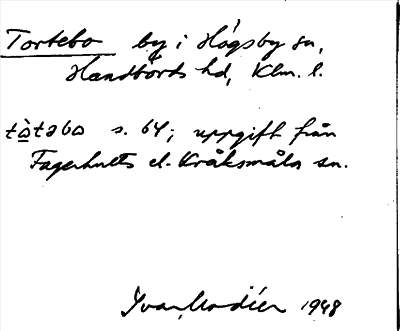 Tortebo by i Högsby sn,
Handbörds hd, Klm. l.
tàtəbo s. 64; uppgift från
Fagerhults el. Kråksmåla sn.
Ivar Modéer 1948